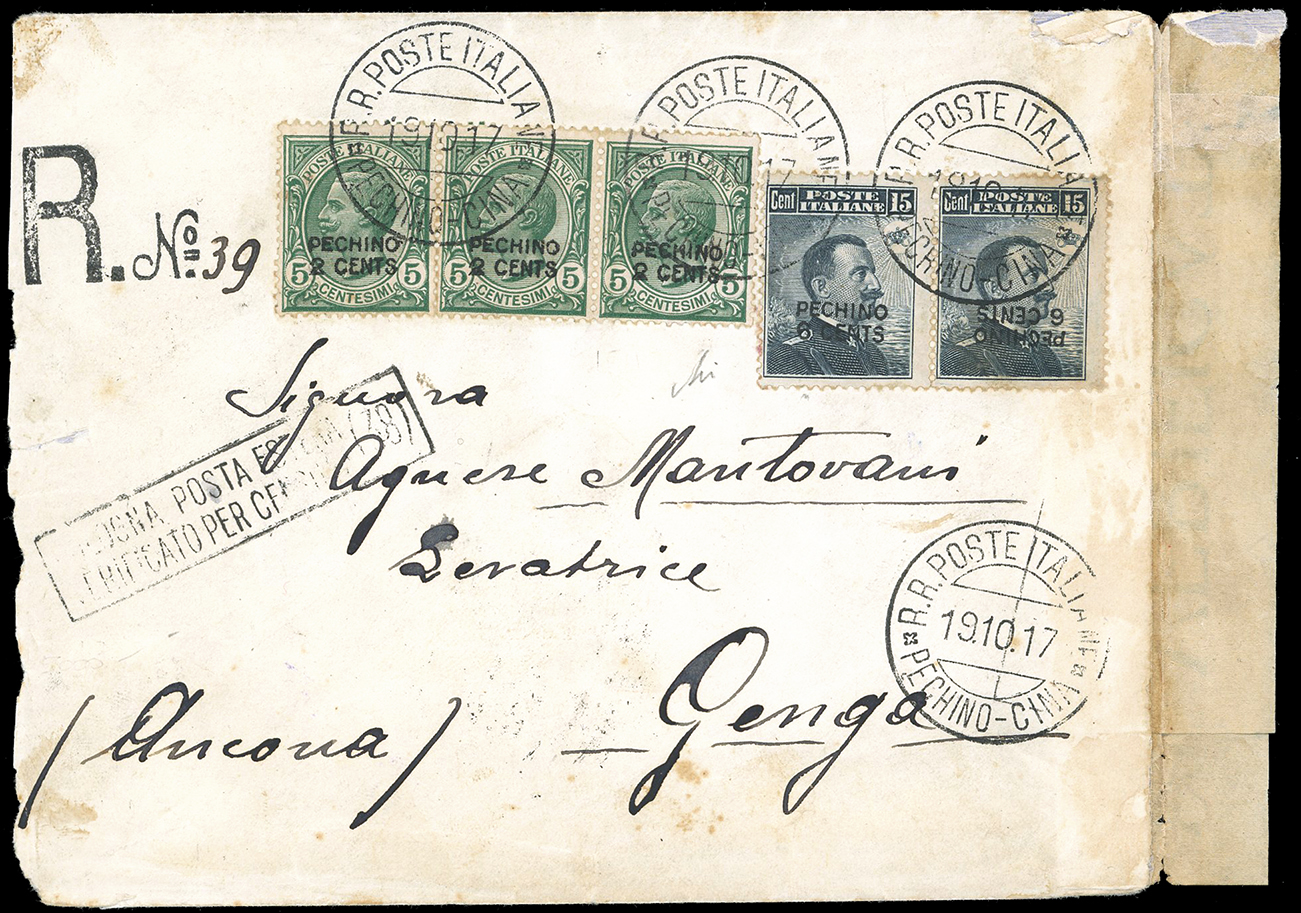 R. R. POSTE ITALIANE
19.10.17
PECHINO-CINA
R. R. POSTE ITALIANE
19.10.17
R. R. POSTE ITALIANE
PECHINO-CINA
POSTE ITALIANE
PECHINO
2 CENTS
5 5
CENTESIMI
POSTE ITALIANE
PECHINO
2 CENTS
5 5
CENTESIMI
POSTE ITALIANE
PECHINO
2 CENTS
5 5
CENTESIMI
Cent POSTE ITALIANE 15
PECHINO
6 CENTS
Cent POSTE ITALIANE 15
PECHINO
6 CENTS
R. No 39
Signora
Agnese Mantovani
Levatrice
Genga
(Ancona)
POSTA
PER
R. R. POSTE ITALIANE
19.10.17
PECHINO-CINA